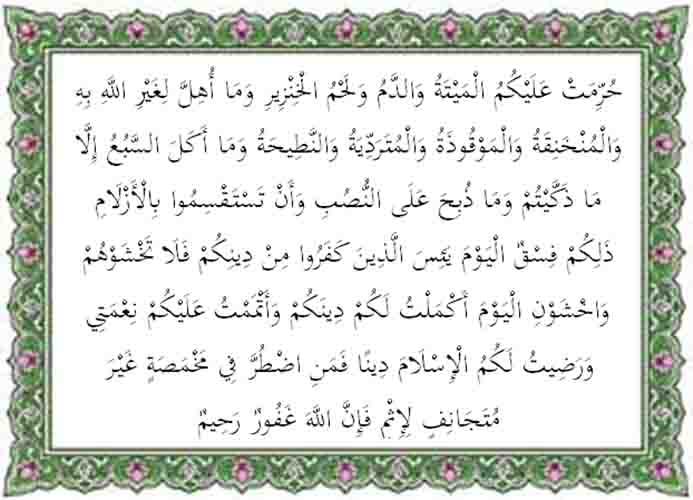 حُرِّمَتْ عَلَيْكُمُ الْمَيْتَةُ وَالدَّمُ وَلَحْمُ الْخِنْزِيرِ وَمَا أُهِلَّ لِغَيْرِ اللَّهِ بِهِ
وَالْمُنْخَنِقَةُ وَالْمَوْقُوذَةُ وَالْمُتَرَدِّيَةُ وَالنَّطِيحَةُ وَمَا أَكَلَ السَّبُعُ إِلَّا
مَا ذَكَّيْتُمْ وَمَا ذُبِحَ عَلَى النُّصُبِ وَأَنْ تَسْتَقْسِمُوا بِالْأَزْلَامِ
ذَلِكُمْ فِسْقٌ الْيَوْمَ يَئِسَ الَّذِينَ كَفَرُوا مِنْ دِينِكُمْ فَلَا تَخْشَوْهُمْ
وَاخْشَوْنِ الْيَوْمَ أَكْمَلْتُ لَكُمْ دِينَكُمْ وَأَتْمَمْتُ عَلَيْكُمْ نِعْمَتِي
وَرَضِيتُ لَكُمُ الْإِسْلَامَ دِينًا فَمَنِ اضْطُرَّ فِي مَخْمَصَةٍ غَيْرَ
مُتَجَانِفٍ لِإِثْمٍ فَإِنَّ اللَّهَ غَفُورٌ رَحِيمٌ